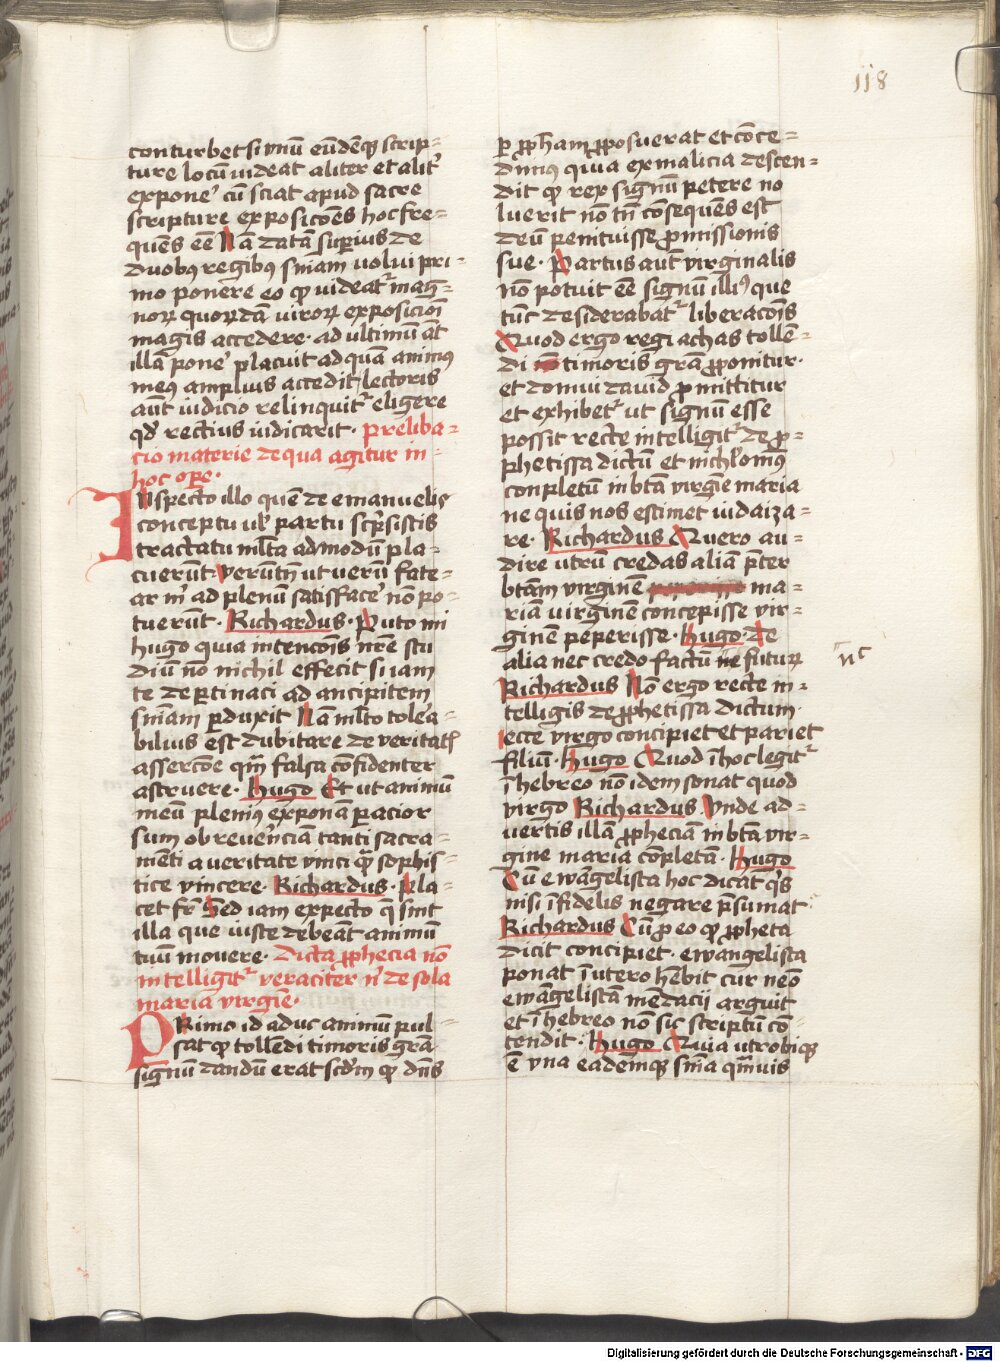 118
conturbet si vnū eūdēq3 scrip=
ture locū videat aliter et alit᷑
expone᷑ cū sciat apud sacre
scripture exposicōēs hoc fre=
quēs eē Nā datā suꝑius de
duobus regibus sn̄iam uolui pri=
mo ponere eo ꝙ videat᷑ mag=
norꝝ quorūdā virorꝝ exposicioī
magis accedere · ad ultimū aūt
illā pone᷑ placuit ad quā animus
meus amplius accedit lectoris
aūt iudicio relinquit᷑ eligere
qd̄ rectius iudicarit · preliba=
cio materie de qua agitur in
hoc oꝑe ·
INspecto illo quē de emanuelis
conceptu uł partu scp̄sistis
tractatu ml̄ta admodū pla=
cuerūt · verūtn̄ ut uerū fate=
ar m᷑ ad plenū satisface᷑ nō po=
tuerūt · Richardus · Puto mi
hugo quia intencōis nr̄e stu
diū nō nichil effecit si iam
te de ꝑtinaci ad ancipitem
sn̄iam ꝑduxit Nā ml̄to tolea=
bilius est dubitare de veritate
assercōe qm̄ falsa cōfidenter
astruere · Hugo Et ut animū
meū plenius exponā pacior
sum ob reuerēciā tanti sacra=
mēti a veritate vinci qͣ sophis=
tice vincere · Richardus · Pla=
cet fr̄ Sed iam expecto q̄ sint
illa que iuste debeāt animū
tuū mouere · Dicta ꝓphecia nō
intelligit᷑ veraciter n᷑ de sola
maria virgīe ·
PRimo id aduc animū pul=
sat ꝙ tollēdi timoris grā
signū dandū erat scd̄m ꝙ dn̄s
ꝑ ꝓph̄am ꝓposuerat et cōce=
dimus quia ex malicia descen=
dit ꝙ rex signū petere no
luerit nō tn̄ cōsequēs est
deū penituisse ꝓmissionis
sue · Partus aūt virginalis
nō potuit eē signū illius que
tūc desiderabat᷑ liberacōis
Quod ergo regi achas tollē=
di timoris grā ꝓponitur ·
et domui dauid ꝓmittitur
et exhibet᷑ ut signū esse
possit recte intelligit᷑ de ꝓ=
phetissa dictū et nichlomus
conpletū in btā virgīe maria
ne quis nos estimet iudaiza=
re · Richardus Quero au=
dire utrū credas aliā preter
btām virginē ma=
riā virginē concepisse vir=
ginē peperisse · Hugo · De
alia nec credo factū ne futurꝝ
n̄c
Richardus Nō ergo recte in=
telligis de ꝓphetissa dictum
ecce virgo concipiet et pariet
filiū · Hugo Quod ī hoc legit᷑
ī hebreo nō idem sonat quod
virgo Richardus Vnde ad=
uertis illā ꝓpheciā in btā vir=
gine maria cōpletā · Hugo
Cū ewāgelista hoc dicat qͥs
nisi īfidelis negare p̄sumat
Richardus Cū ꝓ eo ꝙ ꝓpheta
dicit concipiet · ewangelista
ponat ī utero hēbit cur neō
ewāgelistā mēdacii arguit
et ī hebreo nō sic scriptū cō=
tendit · Hugo Quia utrobiq3
ē vna eademq3 sn̄ia qm̄uis
Digitalisierung gefördert durch die Deutsche Forschungsgemeinschaft - DFG